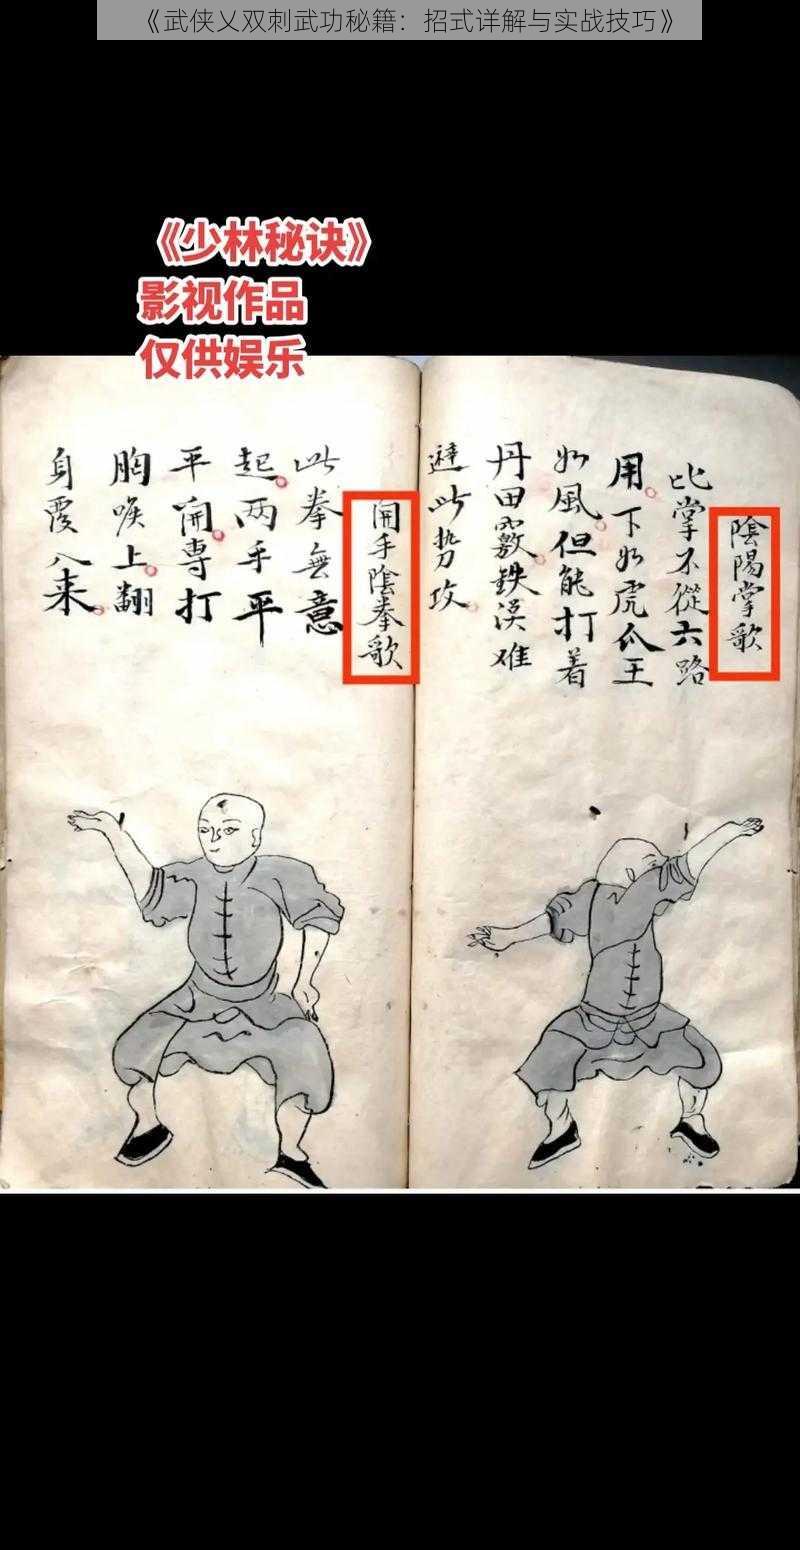 《武侠乂双刺武功秘籍：招式详解与实战技巧》
《少林秘诀》
影视作品
仅供娱乐
陰陽掌歌
比掌不從六路
用下如虎爪王
如風但能打着
丹田竅鉄漢难
避此势攻
開手陰拳歌
此拳無意
起两手平
平開專打
胸喉上翻
身覆入来